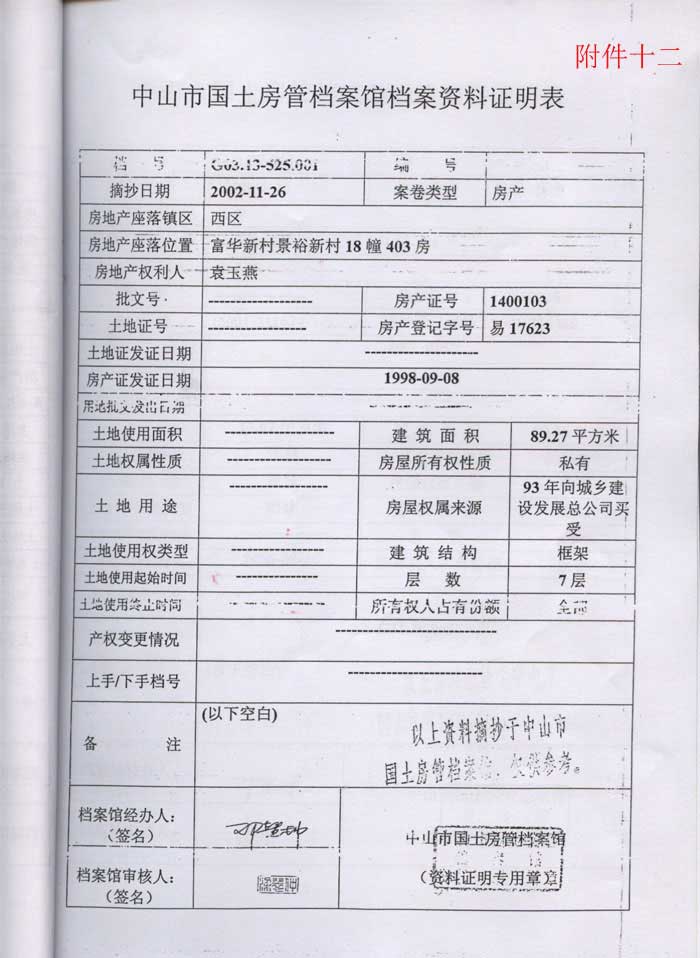 附件十二
中山市国土房管档案馆档案资料证明表
档 号 G03.13-525.001 编 号
摘抄日期 2002-11-26 案卷类型 房产
房地产座落镇区 西区
房地产座落位置 富华新村景裕新村 18 幢 403 房
房地产权利人 袁玉燕
批文号 ------------------ 房产证号 1400103
土地证号 ----------------- 房产登记字号 易 17623
土地证发证日期 --------------------
房产证发证日期 1998-09-08
用地批文发出日期 --------------------
土地使用面积 ------------------- 建 筑 面 积 89.27 平方米
土地权属性质 ------------------- 房屋所有权性质 私有
土 地 用 途 ----------------- 房屋权属来源 93 年向城乡建
设发展总公司买
受
土地使用权类型 ---------------- 建 筑 结 构 框架
土地使用起始时间 ---------------- 层 数 7 层
土地使用终止时间 ---------------- 所有权人占有份额 全部
产权变更情况 -----------------------------
上手/下手档号 ------------------------
备 注 (以下空白)
以上资料摘抄于中山市
国土房管档案馆，仅供参考。
档案馆经办人：
（签名）
中山市国土房管档案馆
（资料证明专用章）
档案馆审核人：
（签名）